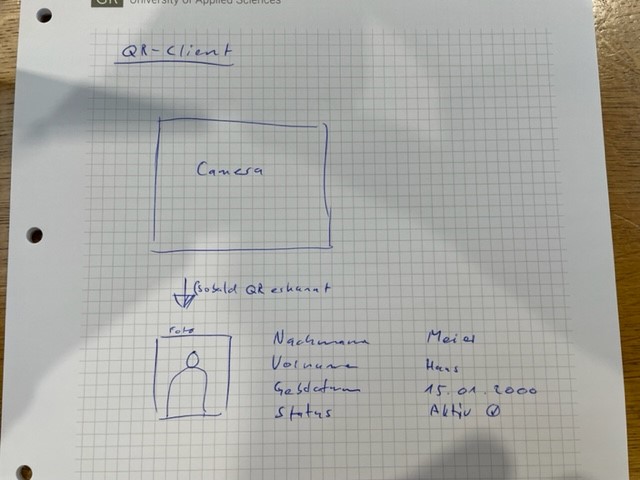 GR University of Applied Sciences
QR-Client
Camera
sobald QR erkannt
Foto
Nachname Meier
Vorname Hans
Gebdatum 15.01.2000
Status Aktiv